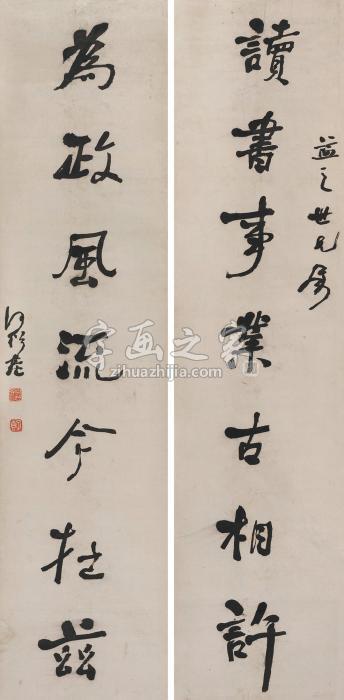 讀書事業古相許
益之世兄屬
為政風流今在茲
何紹基
字画之家
zihuazhijia.com